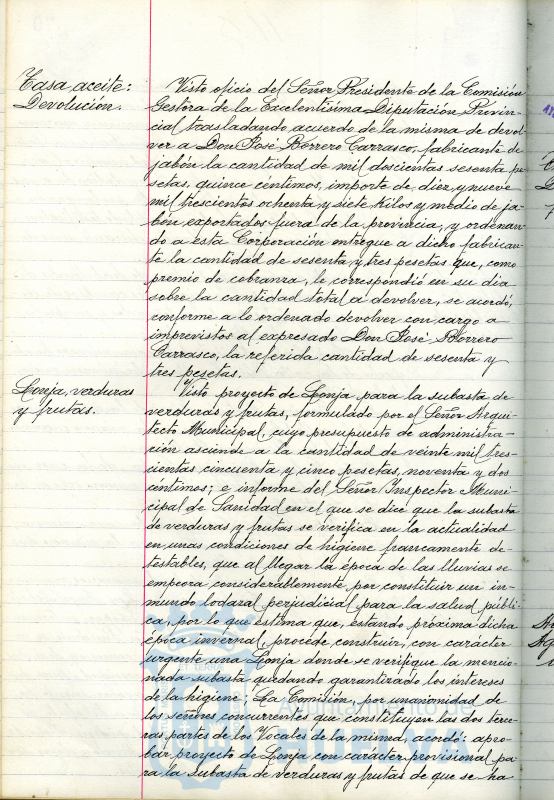 Tasa aceite:
Devolución.
Visto oficio del Señor Presidente de la Comisión
Gestora de la Excelentísima Diputación Provin-
cial trasladando acuerdo de la misma de devol-
ver a Don José Borrero Carrasco, fabricante de
jabón la cantidad de mil doscientas sesenta pe-
setas, quince centimos, importe de diez y nueve
mil trescientos ochenta y siete Kilos y medio de ja-
bón exportados fuera de la provincia, y ordenan-
do a esta Corporación entregue a dicho fabrican-
te la cantidad de sesenta y tres pesetas que, como
premio de cobranza, le correspondió en su dia
sobre la cantidad total a devolver, se acordó,
conforme a lo ordenado devolver con cargo a
imprevistos al expresado Don José Borrero
Carrasco, la referida cantidad de sesenta y
tres pesetas.
Lonja, verduras
y frutas.
Visto proyecto de Lonja para la subasta de
verduras y frutas, formulado por el Señor Arqui-
tecto Municipal, cuyo presupuesto de administra-
ción asciende a la cantidad de veinte mil tres-
cientas cincuenta y cinco pesetas, noventa y dos
centimos; e informe del Señor Inspector Muni-
cipal de Sanidad en el que se dice que la subasta
de verduras y frutas se verifica en la actualidad
en unas condiciones de higiene francamente de-
testables, que al llegar la época de las lluvias se
empeora considerablemente por constituir un in-
mundo lodazal perjudicial para la salud públi-
ca, por lo que estima que, estando próxima dicha
época invernal, procede construir, con carácter
urgente una Lonja donde se verifique la mencio-
nada subasta quedando garantizado los intereses
de la higiene. La Comisión, por unanimidad de
los señores concurrentes que constituyen las dos terce-
ras partes de los Vocales de la misma, acordó: apro-
bar proyecto de Lonja con carácter provisional pa-
ra la subasta de verduras y frutas de que se ha
Ayuntamiento
HUELVA